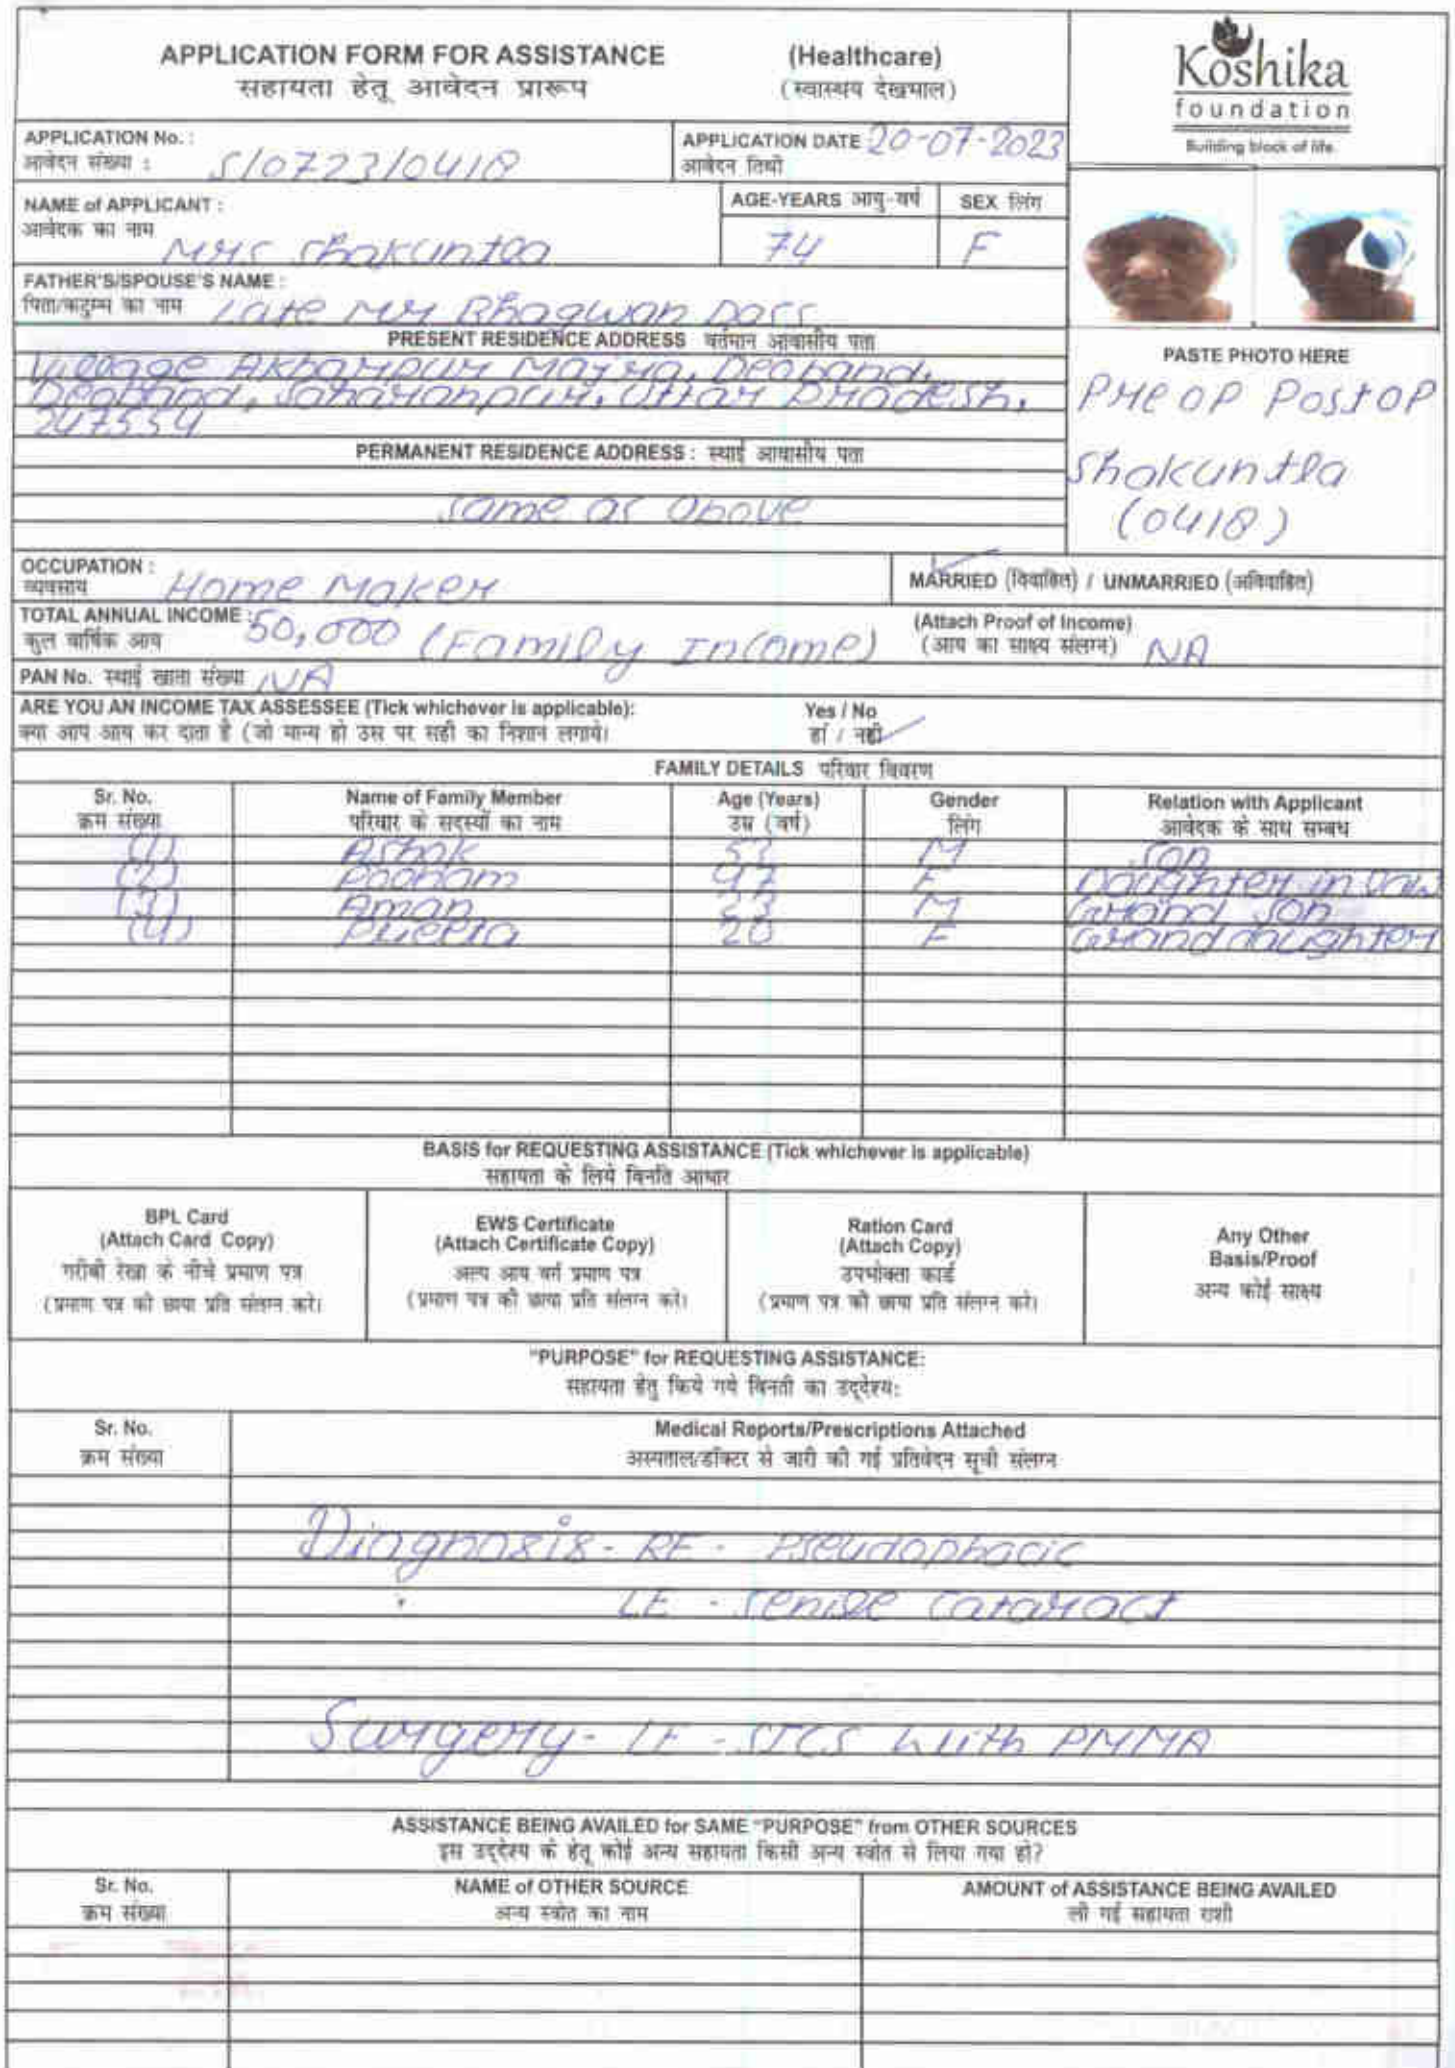 APPLICATION FORM FOR ASSISTANCE (Healthcare)
सहायता हेतू आवेदन प्रारूप (स्वास्थय देखभाल)
Koshika
foundation
Building block of life.
APPLICATION No. : S/0723/0418
आवेदन संख्या :
APPLICATION DATE 20-07-2023
आवेदन तिथी
NAME of APPLICANT :
आवेदक का नाम Mrs Shakuntla
AGE-YEARS आयु-वर्ष
74
SEX लिंग
F
FATHER'S/SPOUSE'S NAME :
पिता/कटुम्म का नाम Late Mr Bhagwan Dass
PRESENT RESIDENCE ADDRESS वर्तमान आवासीय पता
Village Akbarpur Majra, Deoband,
Deoband, Saharanpur, Uttar Pradesh,
247554
PERMANENT RESIDENCE ADDRESS : स्थाई आवासीय पता
same as above
PASTE PHOTO HERE
Pre OP Post OP
Shakuntla
(0418)
OCCUPATION :
व्यवसाय Home Maker
MARRIED (विवाहित) / UNMARRIED (अविवाहित)
TOTAL ANNUAL INCOME : 50,000 (Family Income)
कुल वार्षिक आय
(Attach Proof of Income)
(आय का साक्ष्य संलग्न) NA
PAN No. स्थाई खाता संख्या NA
ARE YOU AN INCOME TAX ASSESSEE (Tick whichever is applicable): Yes / No
क्या आप आय कर दाता है (जो मान्य हो उस पर सही का निशान लगाये। हां / नही
FAMILY DETAILS परिवार विवरण
Sr. No. Name of Family Member Age (Years) Gender Relation with Applicant
क्रम संख्या परिवार के सदस्यों का नाम उम्र (वर्ष) लिंग आवेदक के साथ सम्बध
(1) Ashok M Son
(2) Poonam 47 F Daughter in law
(3) Aman 23 M Grand Son
(4) 20 F Grand daughter
BASIS for REQUESTING ASSISTANCE (Tick whichever is applicable)
सहायता के लिये विनति आधार
BPL Card
(Attach Card Copy)
गरीबी रेखा के नीचे प्रमाण पत्र
(प्रमाण पत्र की छाया प्रति संलग्न करे।
EWS Certificate
(Attach Certificate Copy)
अल्प आय वर्ग प्रमाण पत्र
(प्रमाण पत्र की छाया प्रति संलग्न करे।
Ration Card
(Attach Copy)
उपभोक्ता कार्ड
(प्रमाण पत्र की छाया प्रति संलग्न करे।
Any Other
Basis/Proof
अन्य कोई साक्ष्य
"PURPOSE" for REQUESTING ASSISTANCE:
सहायता हेतु किये गये विनती का उद्देश्य:
Sr. No. Medical Reports/Prescriptions Attached
क्रम संख्या अस्पताल/डॉक्टर से जारी की गई प्रतिवेदन सूची संलग्न
Diagnosis- RE - Pseudophacic
LE - Senile Cataract
Surgery- LE - SICS with PMMA
ASSISTANCE BEING AVAILED for SAME "PURPOSE" from OTHER SOURCES
इस उद्देश्य के हेतू कोई अन्य सहायता किसी अन्य स्त्रोत से लिया गया हो?
Sr. No. NAME of OTHER SOURCE AMOUNT of ASSISTANCE BEING AVAILED
क्रम संख्या अन्य स्त्रोत का नाम ली गई सहायता राशी